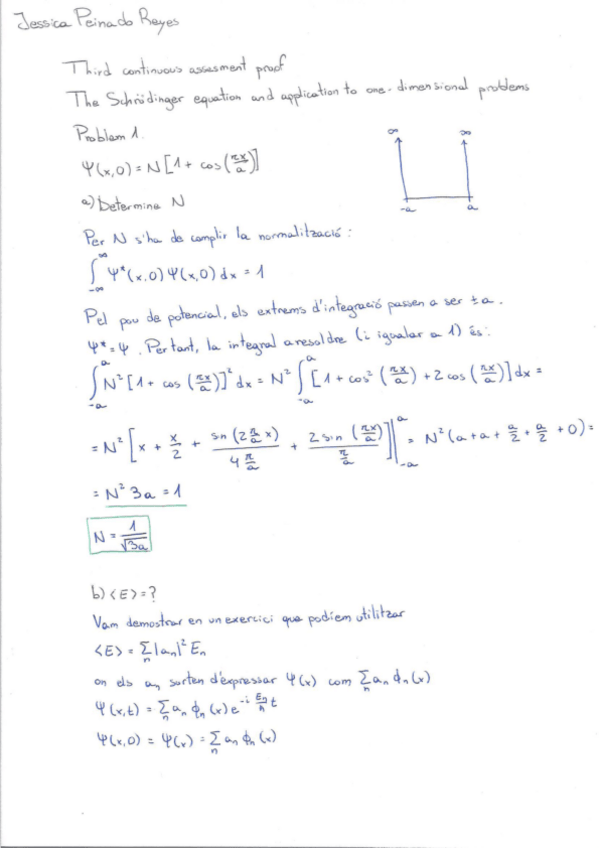 Jessica Peinado Reyes
Third continuous assesment proof
The Schrödinger equation and application to one-dimensional problems
Problem 1.
Ψ(x,0) = N[1 + cos(πx/a)]
∞ ∞
-a a
a) Determina N
Per N s'ha de complir la normalització:
∫_{-∞}^{∞} Ψ*(x,0) Ψ(x,0) dx = 1
Pel pou de potencial, els extrems d'integració passen a ser ±a.
Ψ* = Ψ. Per tant, la integral a resoldre (i igualar a 1) és:
∫_{-a}^{a} N²[1 + cos(πx/a)]² dx = N² ∫_{-a}^{a} [1 + cos²(πx/a) + 2cos(πx/a)] dx =
= N² [x + x/2 + sin(2 π/a x)/(4 π/a) + 2 sin(πx/a)/(π/a)]|_{-a}^{a} = N²(a + a + a/2 + a/2 + 0) =
= N² 3a = 1
N = 1/√3a
b) <E> = ?
Vam demostrar en un exercici que podíem utilitzar
<E> = Σ_n |a_n|² E_n
on els a_n surten d'expressar Ψ(x) com Σ_n a_n ϕ_n(x)
Ψ(x,t) = Σ_n a_n ϕ_n(x) e^{-i E_n/ħ t}
Ψ(x,0) = Ψ(x) = Σ_n a_n ϕ_n(x)